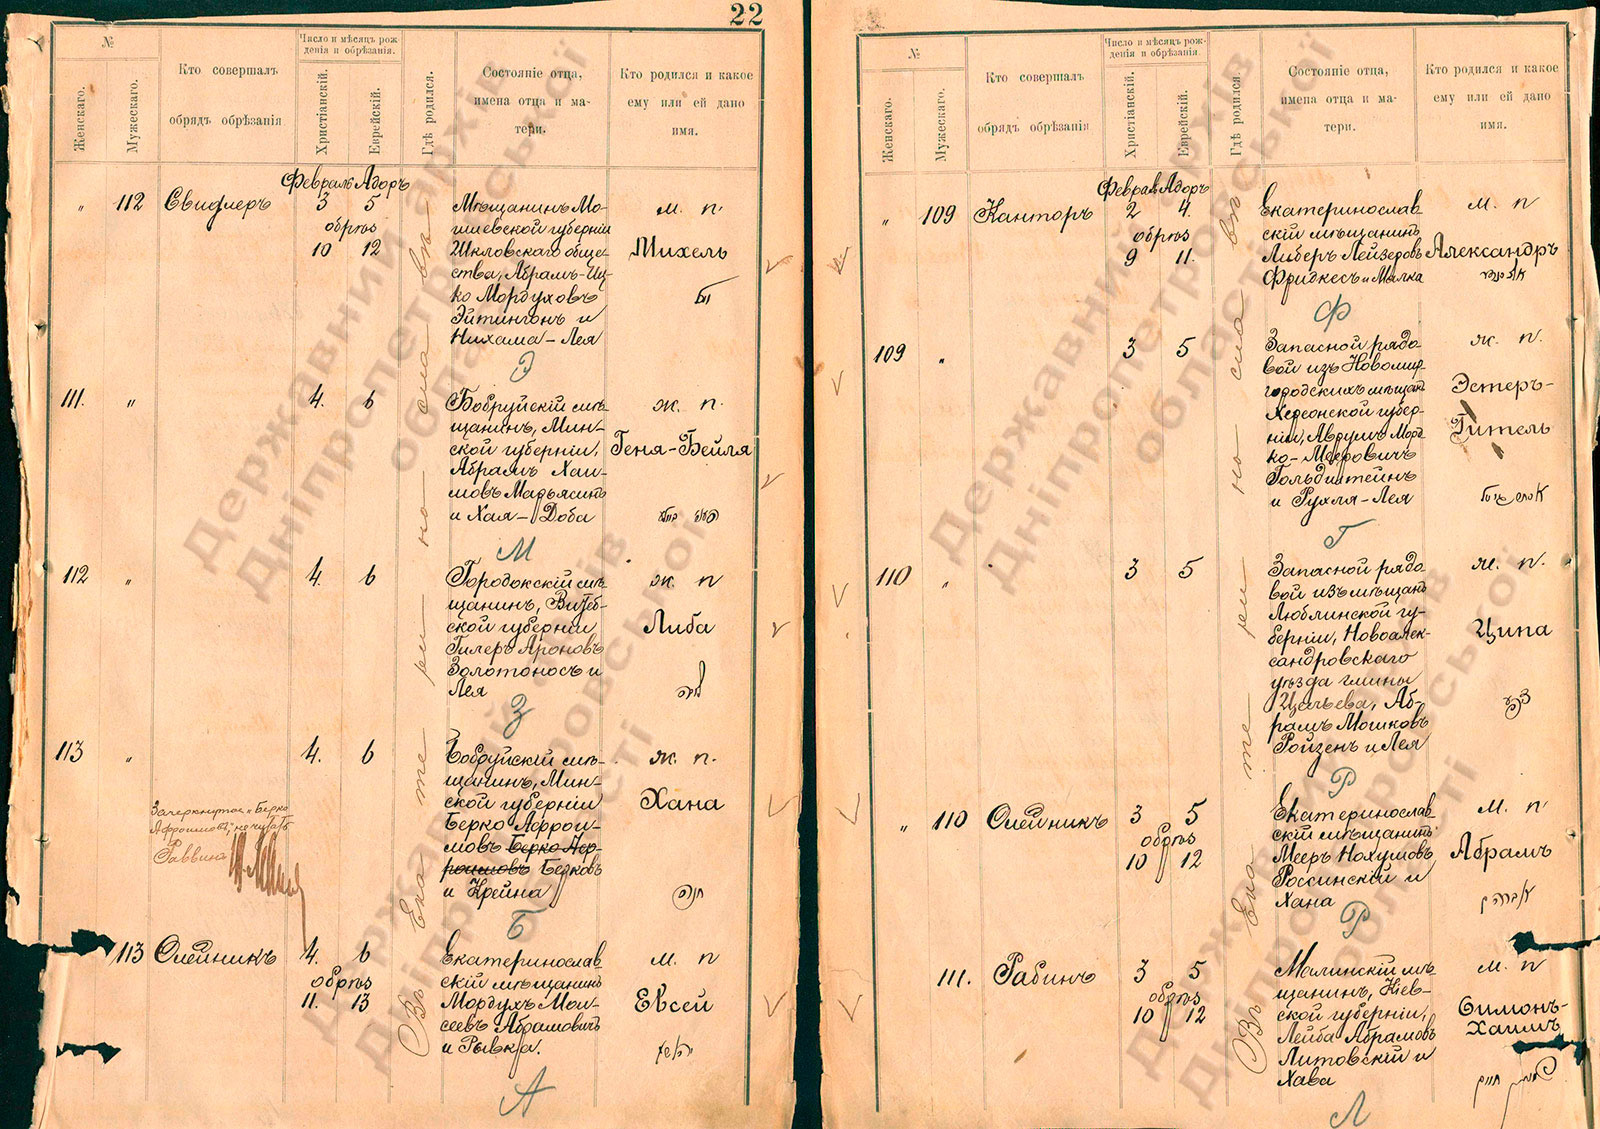 22
№
Женскаго.
Мужескаго.
Кто совершалъ
обрядъ обрѣзанія
Число и мѣсяцъ рож-
денія и обрѣзанія.
Христіанскій.
Еврейскій.
Гдѣ родился.
Состояніе отца,
имена отца и ма-
тери.
Кто родился и какое
ему или ей дано
имя.
Февраль Адоръ
„ 112 Свидлеръ 3 5
обрѣз
10 12
Мѣщанинъ Мо-
гилевской губерніи
Шкловскаго обще-
ства, Абрамъ-Иц-
ко Мордуховъ
Эйтингонъ и
Нихама-Лея
м. п.
Михель
Э
111. „ 4. 6
Бобруйскій мѣ-
щанинъ, Мин-
ской губерніи,
Абрамъ Хаи-
мовъ Марьясинъ
и Хая-Доба
ж. п.
Геня-Бейля
М
112 „ 4. 6
Городокскій мѣ-
щанинъ, Витеб-
ской губерніи
Гилеръ Ароновъ
Золотоносъ и
Лея
ж. п
Либа
З
113 „ 4. 6
Бобруйскій мѣ-
щанинъ, Мин-
ской губерніи
Берко Афрои-
мовъ Берко Аф-
роимовъ Берковъ
и Крейна
ж. п.
Хана
Зачеркнутое „Берко
Афроимовъ" не читать
Раввинъ
Б
113 Олейникъ 4. 6
обрѣз
11. 13
Екатеринослав-
скій мѣщанинъ
Мордухъ Мои-
сеевъ Абрамовичъ
и Рывка.
м. п
Евсей
А
Въ Екатеринославѣ
№
Женскаго.
Мужескаго.
Кто совершалъ
обрядъ обрѣзанія
Число и мѣсяцъ рож-
денія и обрѣзанія.
Христіанскій.
Еврейскій.
Гдѣ родился.
Состояніе отца,
имена отца и ма-
тери.
Кто родился и какое
ему или ей дано
имя.
Февраль Адоръ
„ 109 Канторъ 2 4.
обрѣз
9 11.
Екатеринослав-
скій мѣщанинъ
Либеръ Лейзеровъ
Фридкесъ и Малка
м. п
Александръ
Ф
109 „ 3 5
Запасной рядо-
вой изъ Новомир-
городскихъ мѣщанъ
Херсонской губер-
ніи, Аврумъ Морд-
ко-Мееровичъ
Гольдштейнъ
и Рухля-Лея
ж. п.
Эстеръ-
Гитель
Г
110 „ 3 5
Запасной рядо-
вой изъ мѣщанъ
Люблинской гу-
берніи, Новоалек-
сандровскаго
уѣзда гмины
Аб-
рамъ Мошковъ
Ройзенъ и Лея
ж. п.
Ципа
Р
„ 110 Олейникъ 3 5
обрѣз
10 12
Екатеринослав-
скій мѣщанинъ
Мееръ Нохумовъ
Россинскій и
Хана
м. п
Абрамъ
Р
111. Рабинъ 3 5
обрѣз
10 12
Малинскій мѣ-
щанинъ, Кіев-
ской губерніи,
Лейба Абрамовъ
Литовскій и
Хава
м. п
Симонъ-
Хаимъ
Л
Въ Екатеринославѣ
Державний архів
Дніпропетровської
області